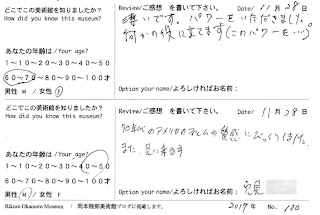 どこでこの美術館を知りましたか?
How did you know this museum?
あなたの年齢は /Your age?
1〜10〜20〜30〜40〜50
60〜70〜80〜90〜100才
男性 M / 女性 F
Review/ご感想 を書いて下さい。 Date/ 11/28日
尊いです。パワーをいただきました。
何かの役に立てます(このパワーを…)
Option your name/よろしければお名前:
どこでこの美術館を知りましたか?
How did you know this museum?
あなたの年齢は /Your age?
1〜10〜20〜30〜40〜50
60〜70〜80〜90〜100才
男性 M / 女性 F
Review/ご感想 を書いて下さい。 Date/ 11/28日
70年代のアメリカの
また、見に来ます
Option your name/よろしければお名前:
Rikuro Okamoto Museum. / 岡本陸郎美術館ブログに掲載します。 2019年 No. 180